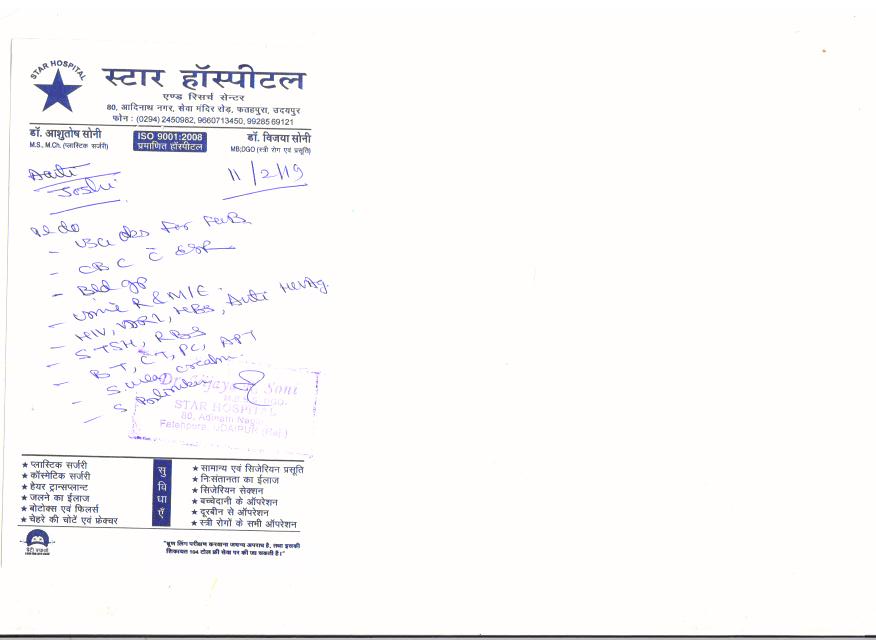 STAR HOSPITAL
स्टार हॉस्पीटल
एण्ड रिसर्च सेन्टर
80, आदिनाथ नगर, सेवा मंदिर रोड़, फतहपुरा, उदयपुर
फोन : (0294) 2450982, 9660713450, 9928569121
डॉ. आशुतोष सोनी
M.S., M.Ch. (प्लास्टिक सर्जरी)
ISO 9001:2008
प्रमाणित हॉस्पीटल
डॉ. विजया सोनी
MB;DGO (स्त्री रोग एवं प्रसूति)
Joshi
11/2/19
Pl do
- USG obs for
- CBC c̄ ESR
- Bld gp
- Urine R & M/E
- HIV, VDRL, HBS, Anti HCV Ag.
- S TSH, RBS
- BT, CT, PC, APT
- S urea creatn.
- S
Soni
STAR HOSPITAL
80, Adinath Nagar
Fatehpura, UDAIPUR (Raj.)
★ प्लास्टिक सर्जरी
★ कॉस्मेटिक सर्जरी
★ हेयर ट्रान्सप्लान्ट
★ जलने का ईलाज
★ बोटोक्स एवं फिलर्स
★ चेहरे की चोटें एवं फ्रेक्चर
सुविधाएँ
★ सामान्य एवं सिजेरियन प्रसूति
★ निःसंतानता का ईलाज
★ सिजेरियन सेक्शन
★ बच्चेदानी के ऑपरेशन
★ दूरबीन से ऑपरेशन
★ स्त्री रोगों के सभी ऑपरेशन
"भ्रूण लिंग परीक्षण करवाना जघन्य अपराध है, तथा इसकी
शिकायत 104 टोल फ्री सेवा पर की जा सकती है।"